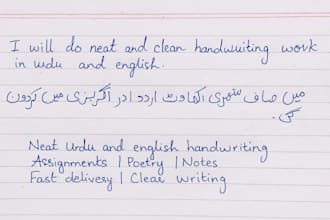 I will do neat and clean handwriting work
in urdu and english.
میں صاف ستھری لکھاوٹ اردو اور انگریزی میں کردوں
گی۔
Neat Urdu and english handwriting
Assignments | Poetry | Notes
Fast delivery | Clear writing